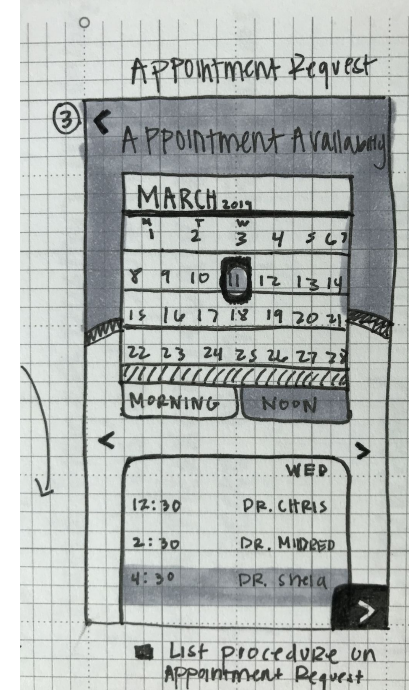 Appointment Request
3
<
Appointment Availability
MARCH 2019
M T W
1 2 3 4 5 6 7
8 9 10 11 12 13 14
15 16 17 18 19 20 21
22 23 24 25 26 27 28
MORNING NOON
< >
WED
12:30 DR. CHRIS
2:30 DR. MIDRED
4:30 DR. Shela
>
List procedure on
Appointment Request